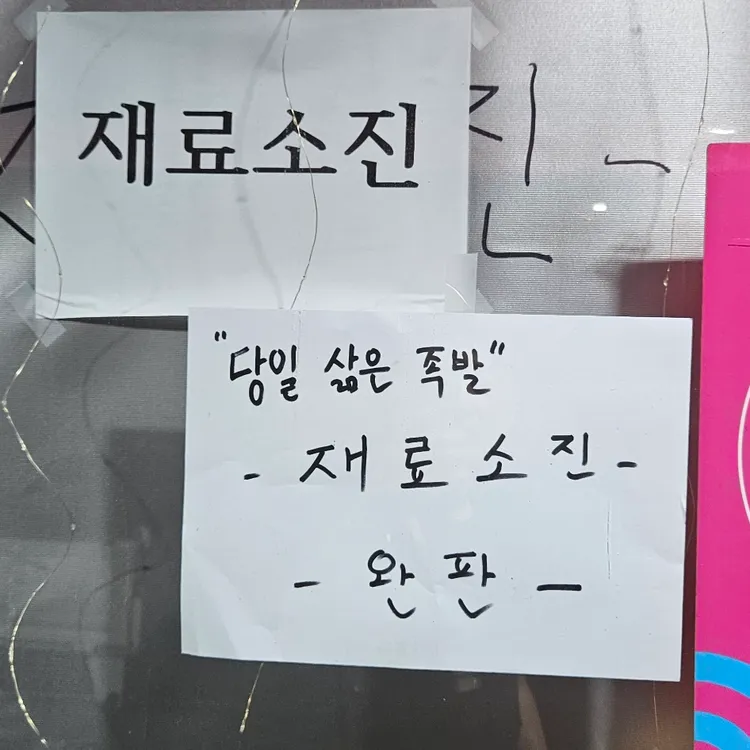 재료소진
진 -
"당일 삶은 족발"
- 재 료 소 진 -
- 완 판 -